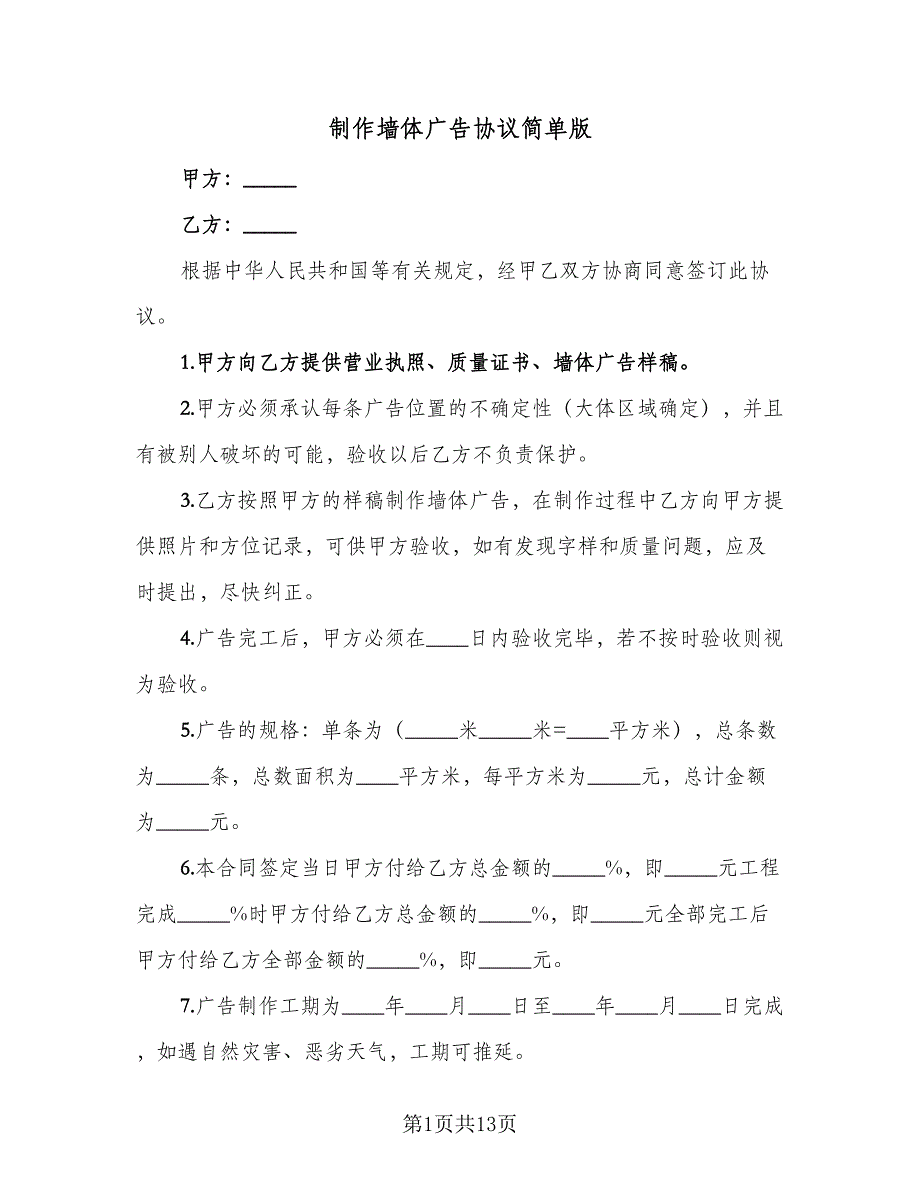 制作墙体广告协议简单版
甲方：_____
乙方：_____
根据中华人民共和国等有关规定，经甲乙双方协商同意签订此协
议。
1.甲方向乙方提供营业执照、质量证书、墙体广告样稿。
2.甲方必须承认每条广告位置的不确定性（大体区域确定），并且
有被别人破坏的可能，验收以后乙方不负责保护。
3.乙方按照甲方的样稿制作墙体广告，在制作过程中乙方向甲方提
供照片和方位记录，可供甲方验收，如有发现字样和质量问题，应及
时提出，尽快纠正。
4.广告完工后，甲方必须在____日内验收完毕，若不按时验收则视
为验收。
5.广告的规格：单条为（_____米_____米=____平方米），总条数
为_____条，总数面积为____平方米，每平方米为_____元，总计金额
为_____元。
6.本合同签定当日甲方付给乙方总金额的_____%，即_____元工程
完成_____%时甲方付给乙方总金额的_____%，即_____元全部完工后
甲方付给乙方全部金额的_____%，即_____元。
7.广告制作工期为____年____月____日至____年____月____日完成
，如遇自然灾害、恶劣天气，工期可推延。
第1页共13页